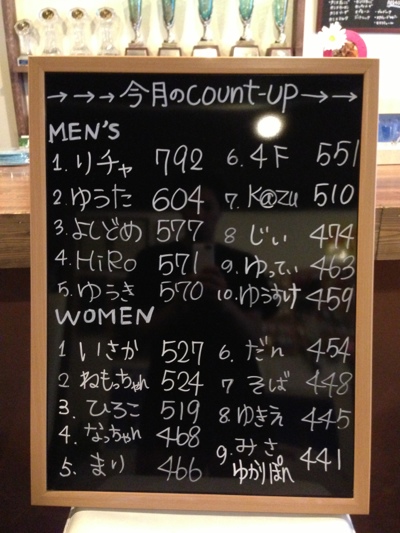 →→→今月のcount-up→→
MEN'S
1. りチャ 792
2. ゆうた 604
3. よしどめ 577
4. HiRo 571
5. ゆうき 570
6. 4F 551
7. K@zu 510
8 じい 474
9. ゆってぃ 463
10. ゆうすけ 459
WOMEN
1 いさか 527
2 ねもっちゃん 524
3. ひろこ 519
4. なっちゃん 468
5. まり 466
6. だん 454
7 そば 448
8 ゆきえ 445
9. みさ 441
ゆかりぽん